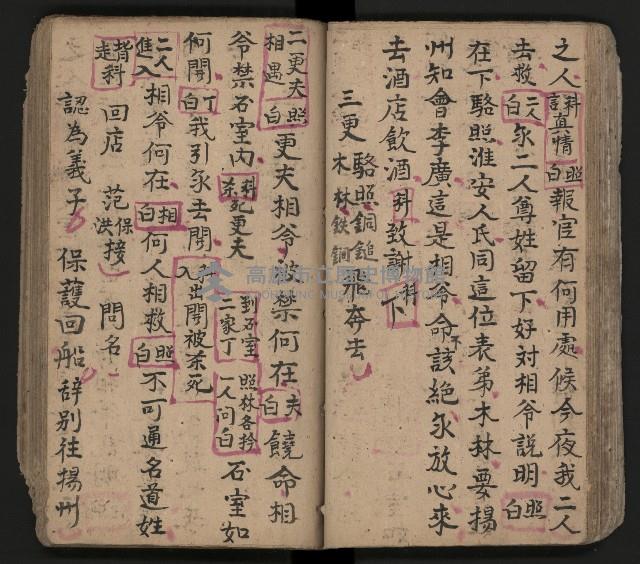 之人科說真情照白報官有何用處候今夜我二人
去救二人白永二人尊姓留下好対相爷說明照白
在下駱照淮安人氏同這位表弟木林要揚
州知會李廣這是相爷命不該絶永放心來
去酒店飲酒科致謝科下
三更 駱照銅鎚 木林鉄鐧 飛奔去
二更夫相遇照白更夫相爷被禁何在夫白饒命相
爷禁石室內科杀死更夫 到石室二家丁 照林各拎一人问白 石室如
何開丁白我引永去開十出開被杀死入
二人進入相爷何在相白何人相救照白不可通名道姓
背科走 回店 范洪保接 問名
認為義子 保護回船辞别往揚州
高雄市立歷史博物館
KAOHSIUNG MUSEUM OF HISTORY